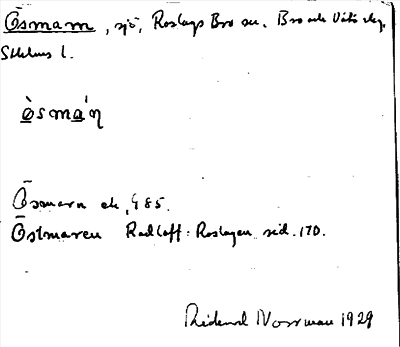 Ösmarn, sjö, Roslags Bro sn. Bro och Vätö skg.
Sthlms l.
ò̱sma̱'η
Ösmarn ek. 485.
Östmaren Radloff: Roslagen sid. 170.
Rickard Norrman 1929